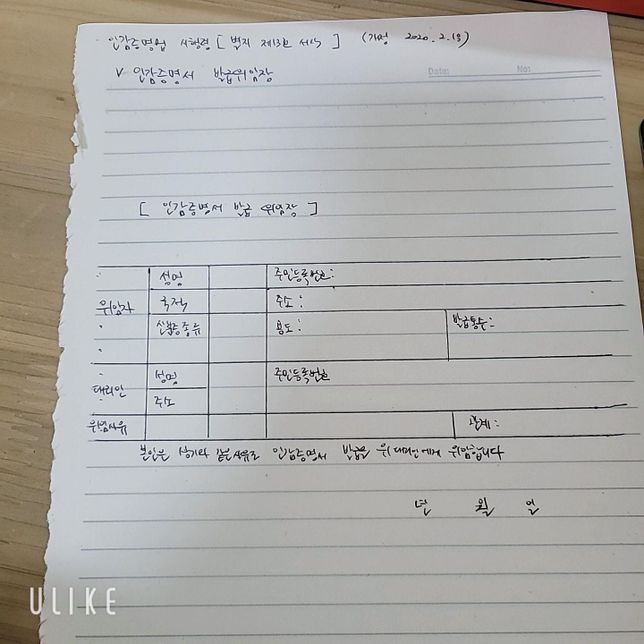 인감증명법 시행령 [ 별지 제13호 서식 ] (개정 2020.2.18)
V 인감증명서 발급위임장
Date: No:
[ 인감증명서 발급 위임장 ]
성명 주민등록번호:
위임자 국적 주소:
신분증종류 용도: 발급통수:
성명 주민등록번호
대리인
주소
위임사유 관계:
본인은 상기와 같은 사유로 인감증명서 발급을 위 대리인에게 위임합니다
년 월 일
ULIKE